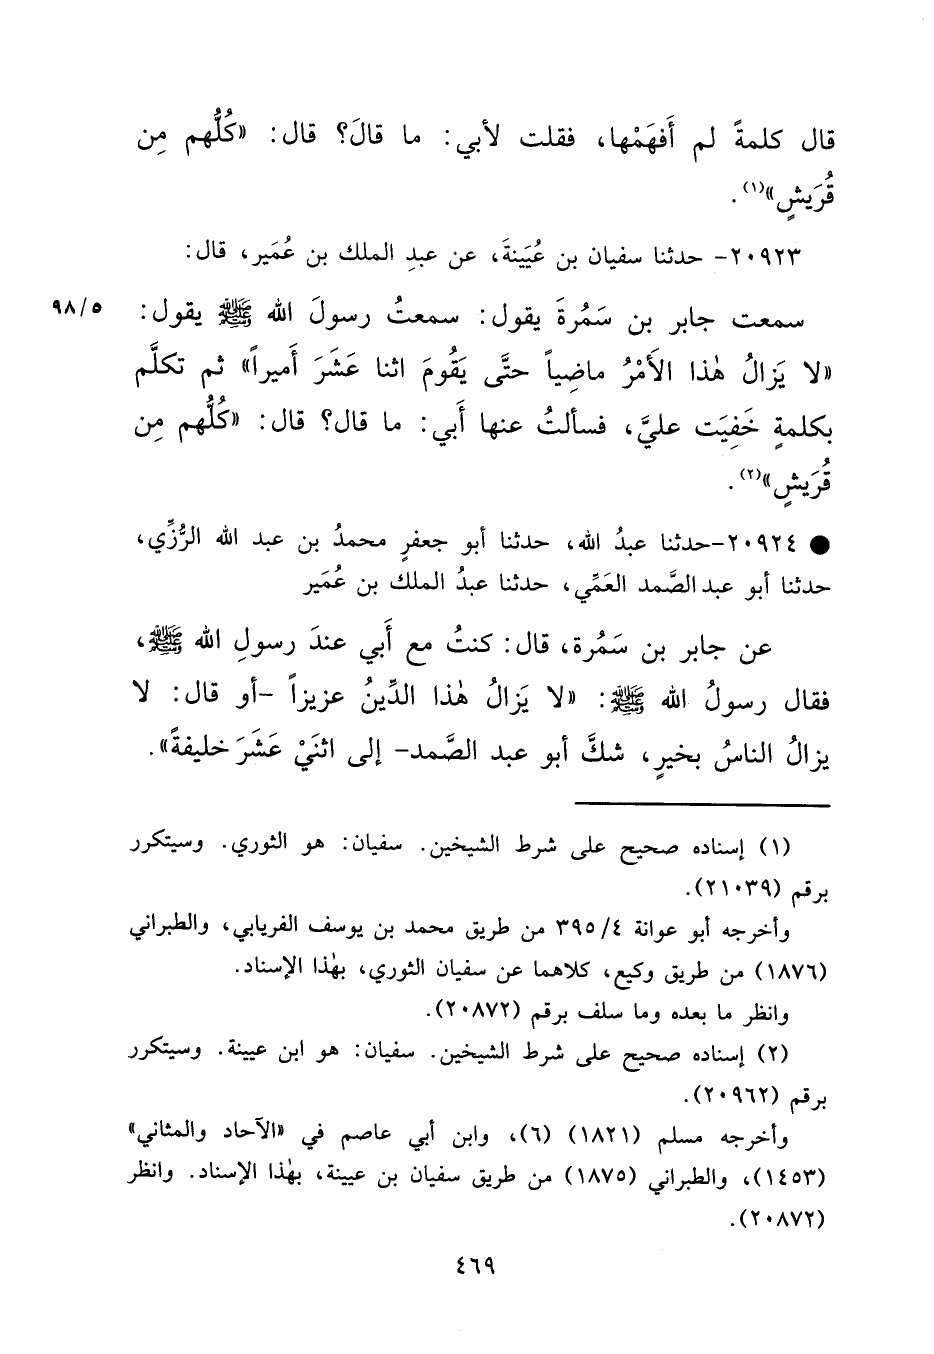 قال كلمةً لم أَفهَمْها، فقلت لأبي: ما قالَ؟ قال: «كُلُّهم مِن
قُرَيشٍ»(١).
٢٠٩٢٣- حدثنا سفيان بن عُيَينةَ، عن عبدِ الملك بن عُمَير، قال:
سمعت جابر بن سَمُرةَ يقول: سمعتُ رسولَ الله ﷺ يقول: ٩٨/٥
«لا يَزالُ هٰذا الأَمْرُ ماضِياً حتَّى يَقُومَ اثنا عَشَرَ أَميراً» ثم تكلَّم
بكلمةٍ خَفِيَت عليَّ، فسألتُ عنها أَبي: ما قال؟ قال: «كُلُّهم مِن
قُرَيشٍ»(٢).
● ٢٠٩٢٤-حدثنا عبدُ الله، حدثنا أبو جعفرٍ محمدُ بن عبد الله الرُّزِّي،
حدثنا أبو عبد الصَّمد العَمِّي، حدثنا عبدُ الملك بن عُمَير
عن جابر بن سَمُرة، قال: كنتُ مع أَبي عندَ رسولِ الله ﷺ،
فقال رسولُ الله ﷺ: «لا يَزالُ هٰذا الدِّينُ عزيزاً -أو قال: لا
يزالُ الناسُ بخيرٍ، شكَّ أبو عبد الصَّمد- إلى اثنَيْ عَشَرَ خليفةً».
(١) إسناده صحيح على شرط الشيخين. سفيان: هو الثوري. وسيتكرر
برقم (٢١٠٣٩).
وأخرجه أبو عوانة ٣٩٥/٤ من طريق محمد بن يوسف الفريابي، والطبراني
(١٨٧٦) من طريق وكيع، كلاهما عن سفيان الثوري، بهٰذا الإسناد.
وانظر ما بعده وما سلف برقم (٢٠٨٧٢).
(٢) إسناده صحيح على شرط الشيخين. سفيان: هو ابن عيينة. وسيتكرر
برقم (٢٠٩٦٢).
وأخرجه مسلم (١٨٢١) (٦)، وابن أبي عاصم في «الآحاد والمثاني»
(١٤٥٣)، والطبراني (١٨٧٥) من طريق سفيان بن عيينة، بهٰذا الإسناد. وانظر
(٢٠٨٧٢).
٤٦٩